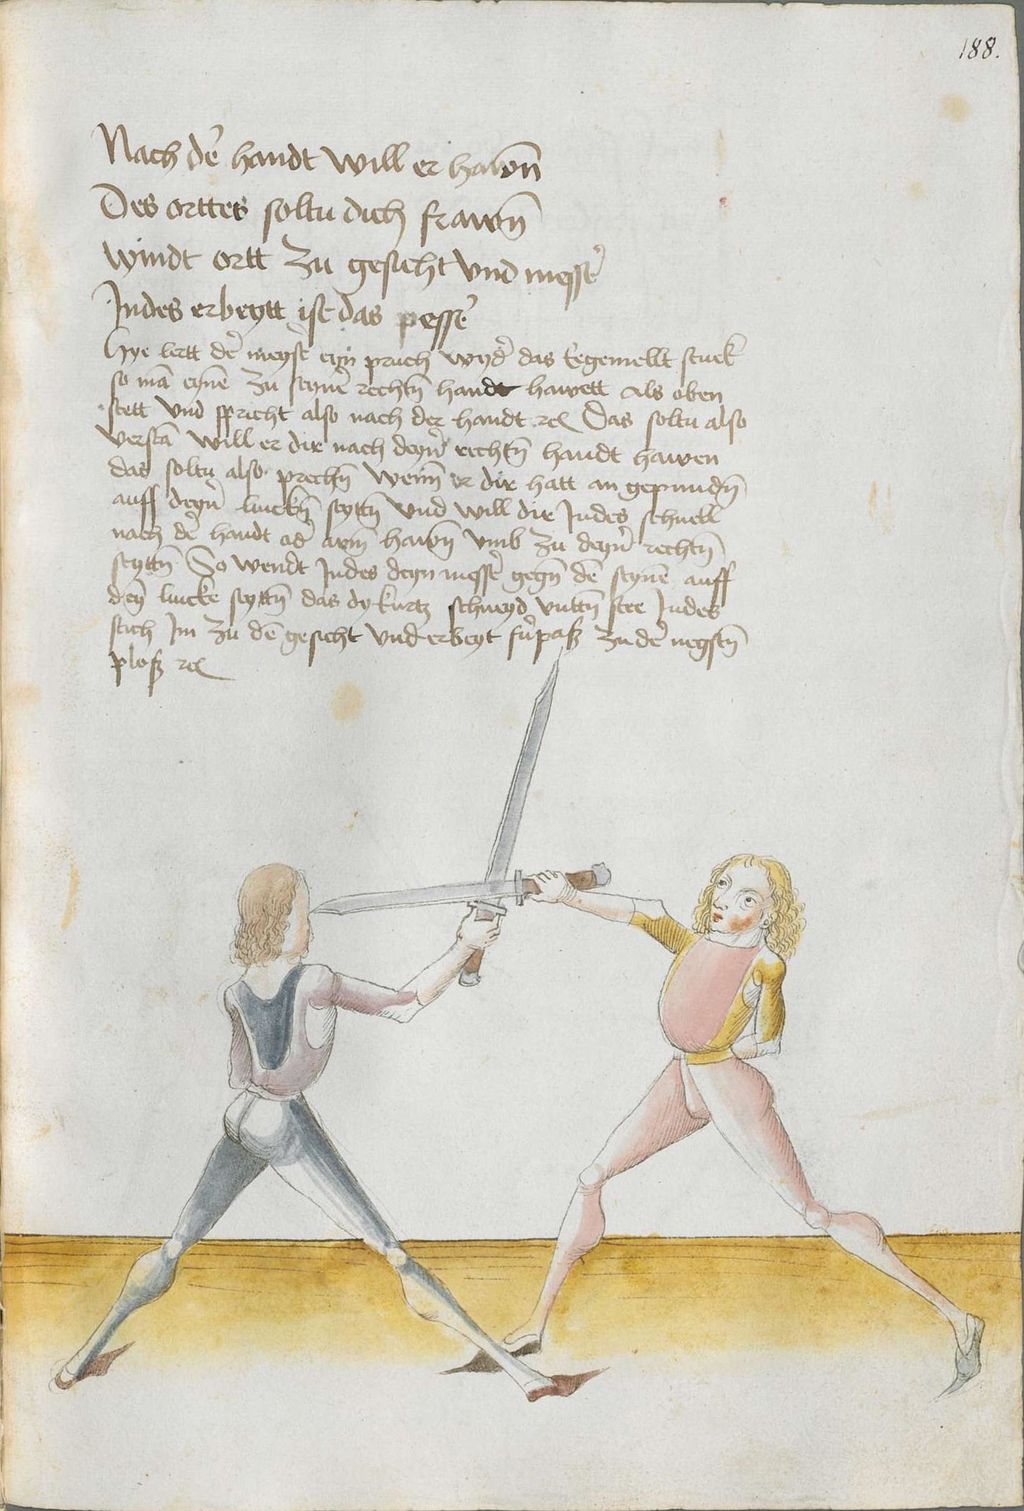 188.
Nach der̄ handt will er hawen̄
Des orttes soltu dich frawen̄
Windt ortt zu gesicht vnd messer̄
Jndes erbeytt ist das pesser̄
Hye lertt der̄ meyster̄ eyn pruch wyder̄ das egemellt stuck
so mā eynē zu seyner̄ rechtn̄ handt hawett als oben
stett vnd spricht also nach der handt rc̄ Das soltu also
verstān will er dir nach deyner̄ rechtn̄ handt hawen
das soltu also prechn̄ wenn̄ er dir hatt an gepundn̄
auff deyner̄ linckn̄ seyttn̄ vnd will dir Jndes schnell
nach der̄ handt oder̄ arm̄ hawen̄ vmb zu deyner̄ rechtn̄
seyttn̄ So wendt Jndes deyn messer̄ gegn̄ dē seynē auff
deyn̄ lincke seyttn̄ das dy kurtz schneyd vnttn̄ stee Jndes
stich Jm zu dē gesicht vnd erbeyt fur̄paß zu der̄ negstn̄
ploß rc̄